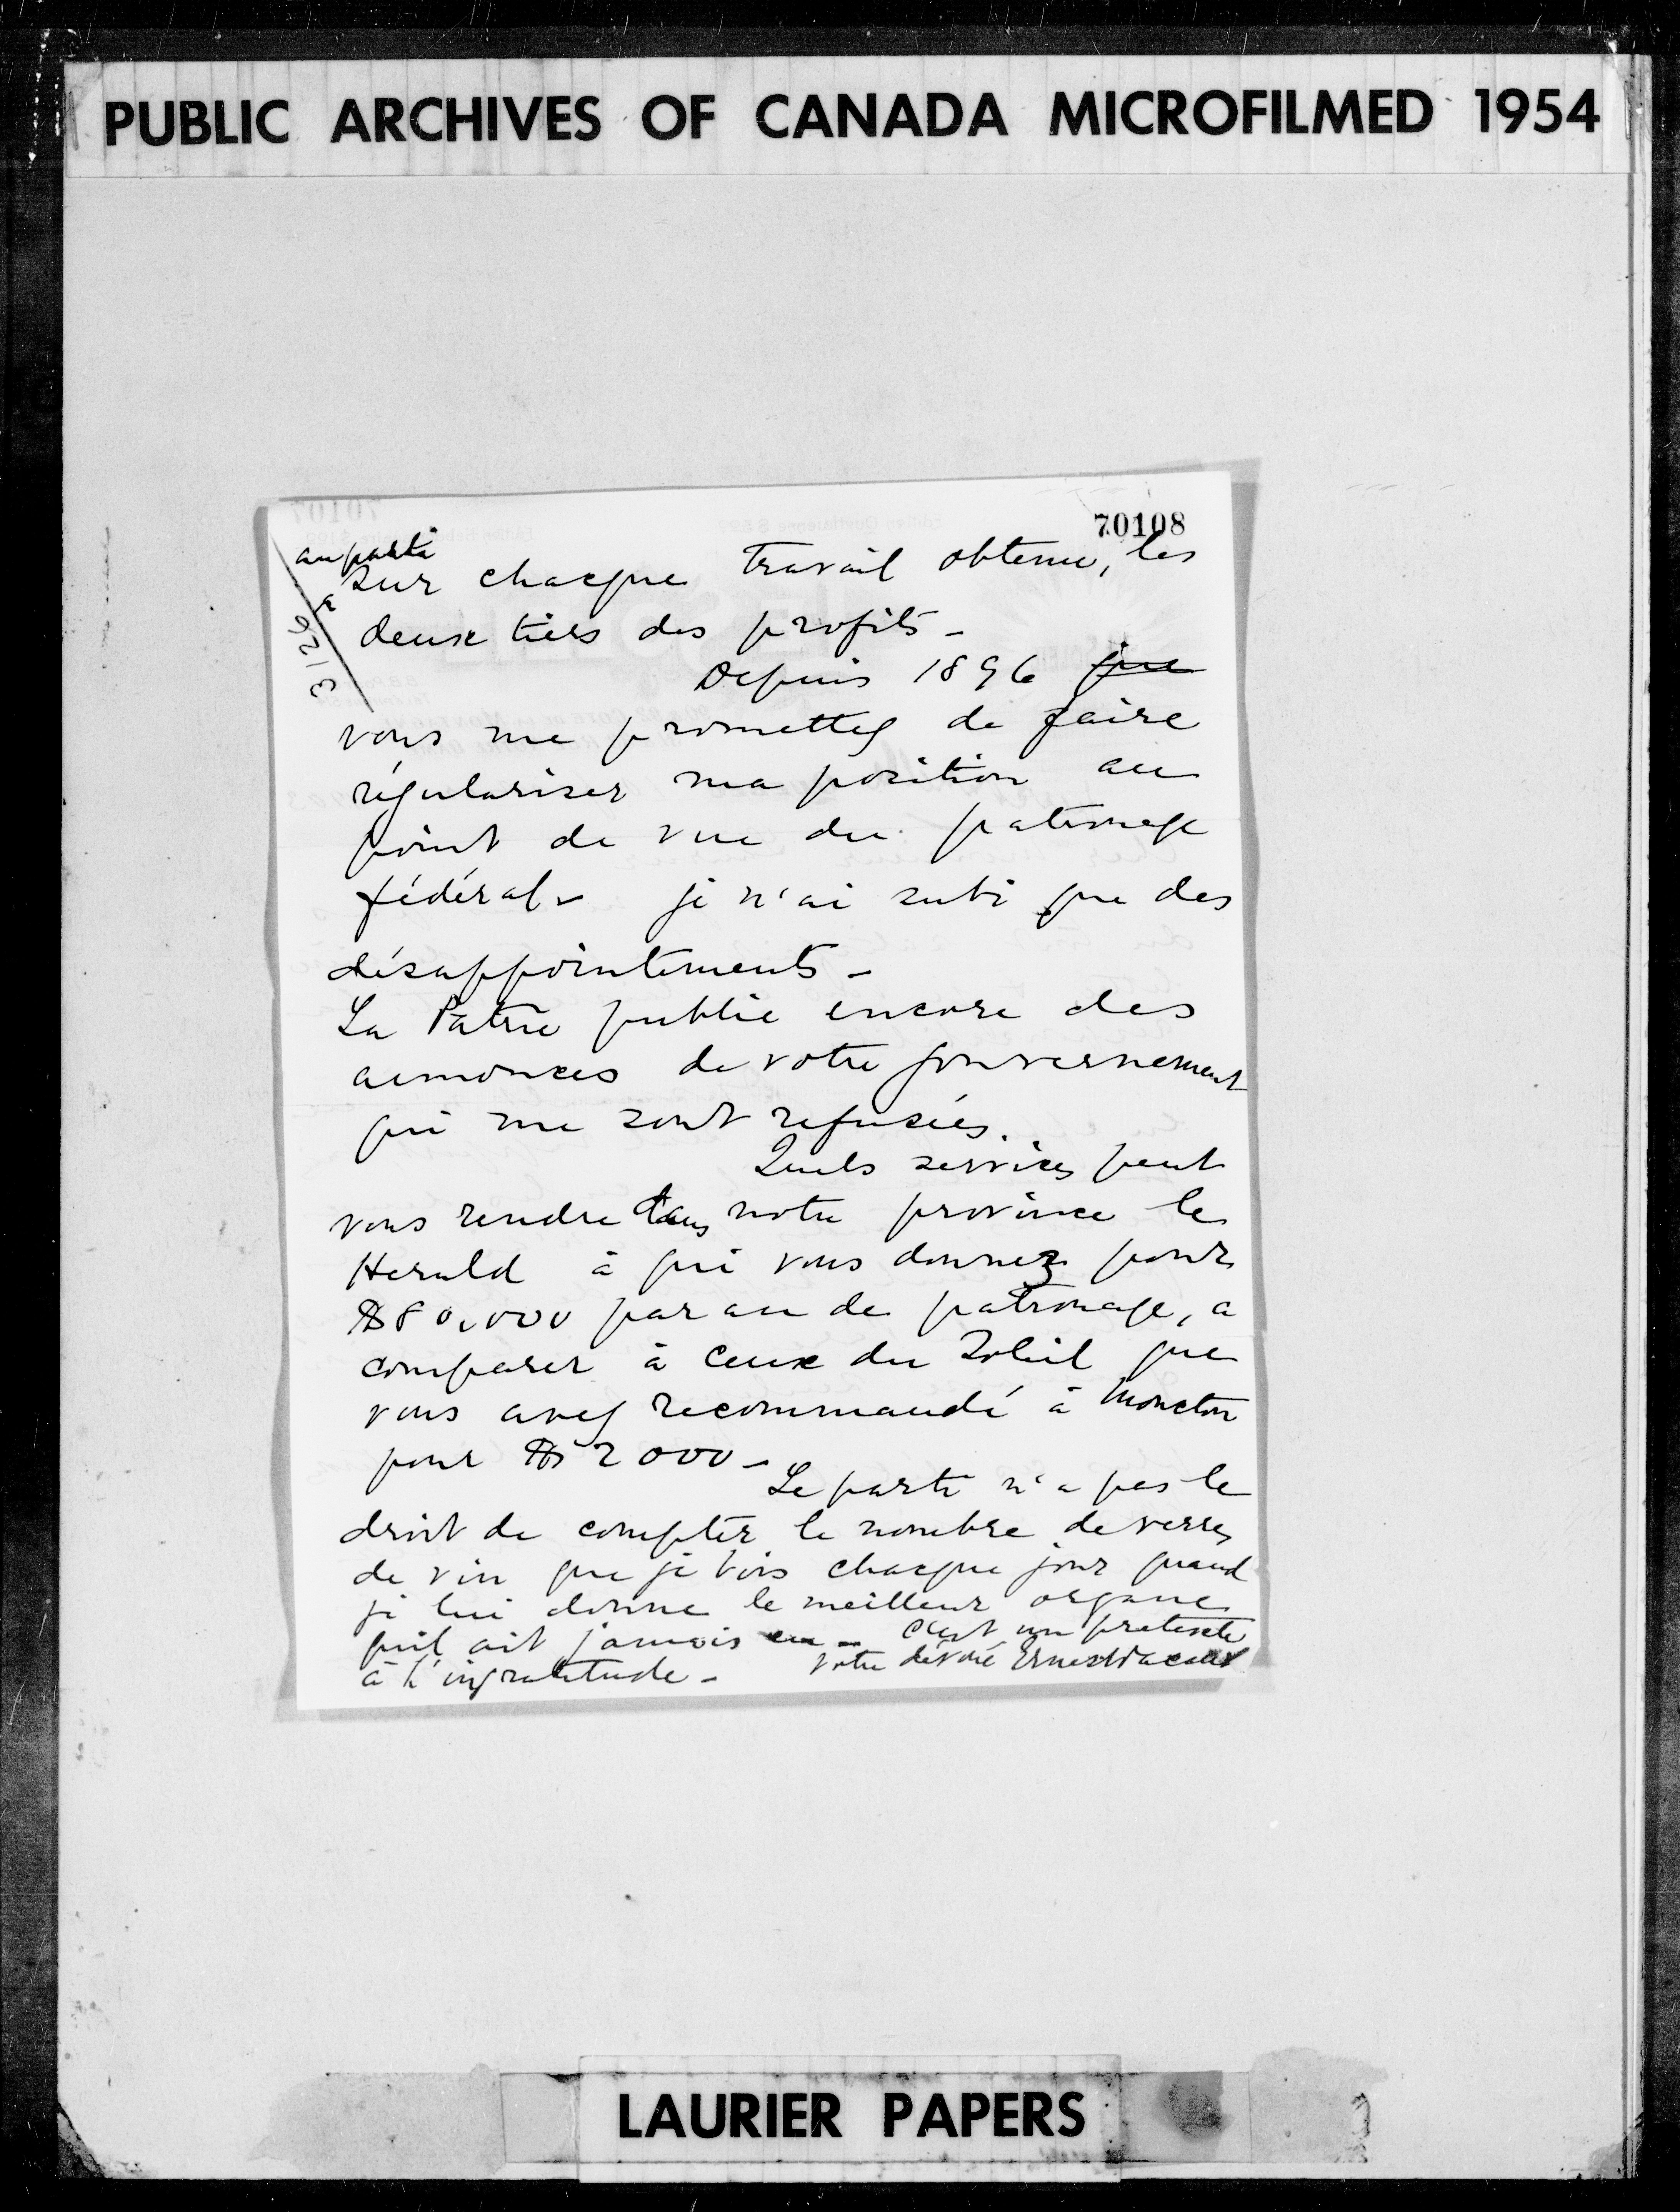 PUBLIC ARCHIVES OF CANADA MICROFILMED 1954
70108
au parti
sur chaque travail obtenu, les
deux tiers des profits -
3126
Depuis 1896 que
vous me promettez de faire
régulariser ma position au
point de vue du patronage
fédéral - je n'ai subi que des
désappointements -
La Patrie publie encore des
annonces de votre gouvernement
qui me sont refusées.
Quels services peut
vous rendre dans notre province le
Herald à qui vous donnez pour
$80,000 par an de patronage, a
comparer à ceux du Soleil que
vous avez recommandé à Moncton
pour $2000 -
Le parti n'a pas le
droit de compter le nombre de verres
de vin que je bois chaque jour quand
je lui donne le meilleur organe
qu'il ait jamais eu - C'est un pretexte
à l'ingratitude - Votre dévoué Ernest Pacaud
LAURIER PAPERS